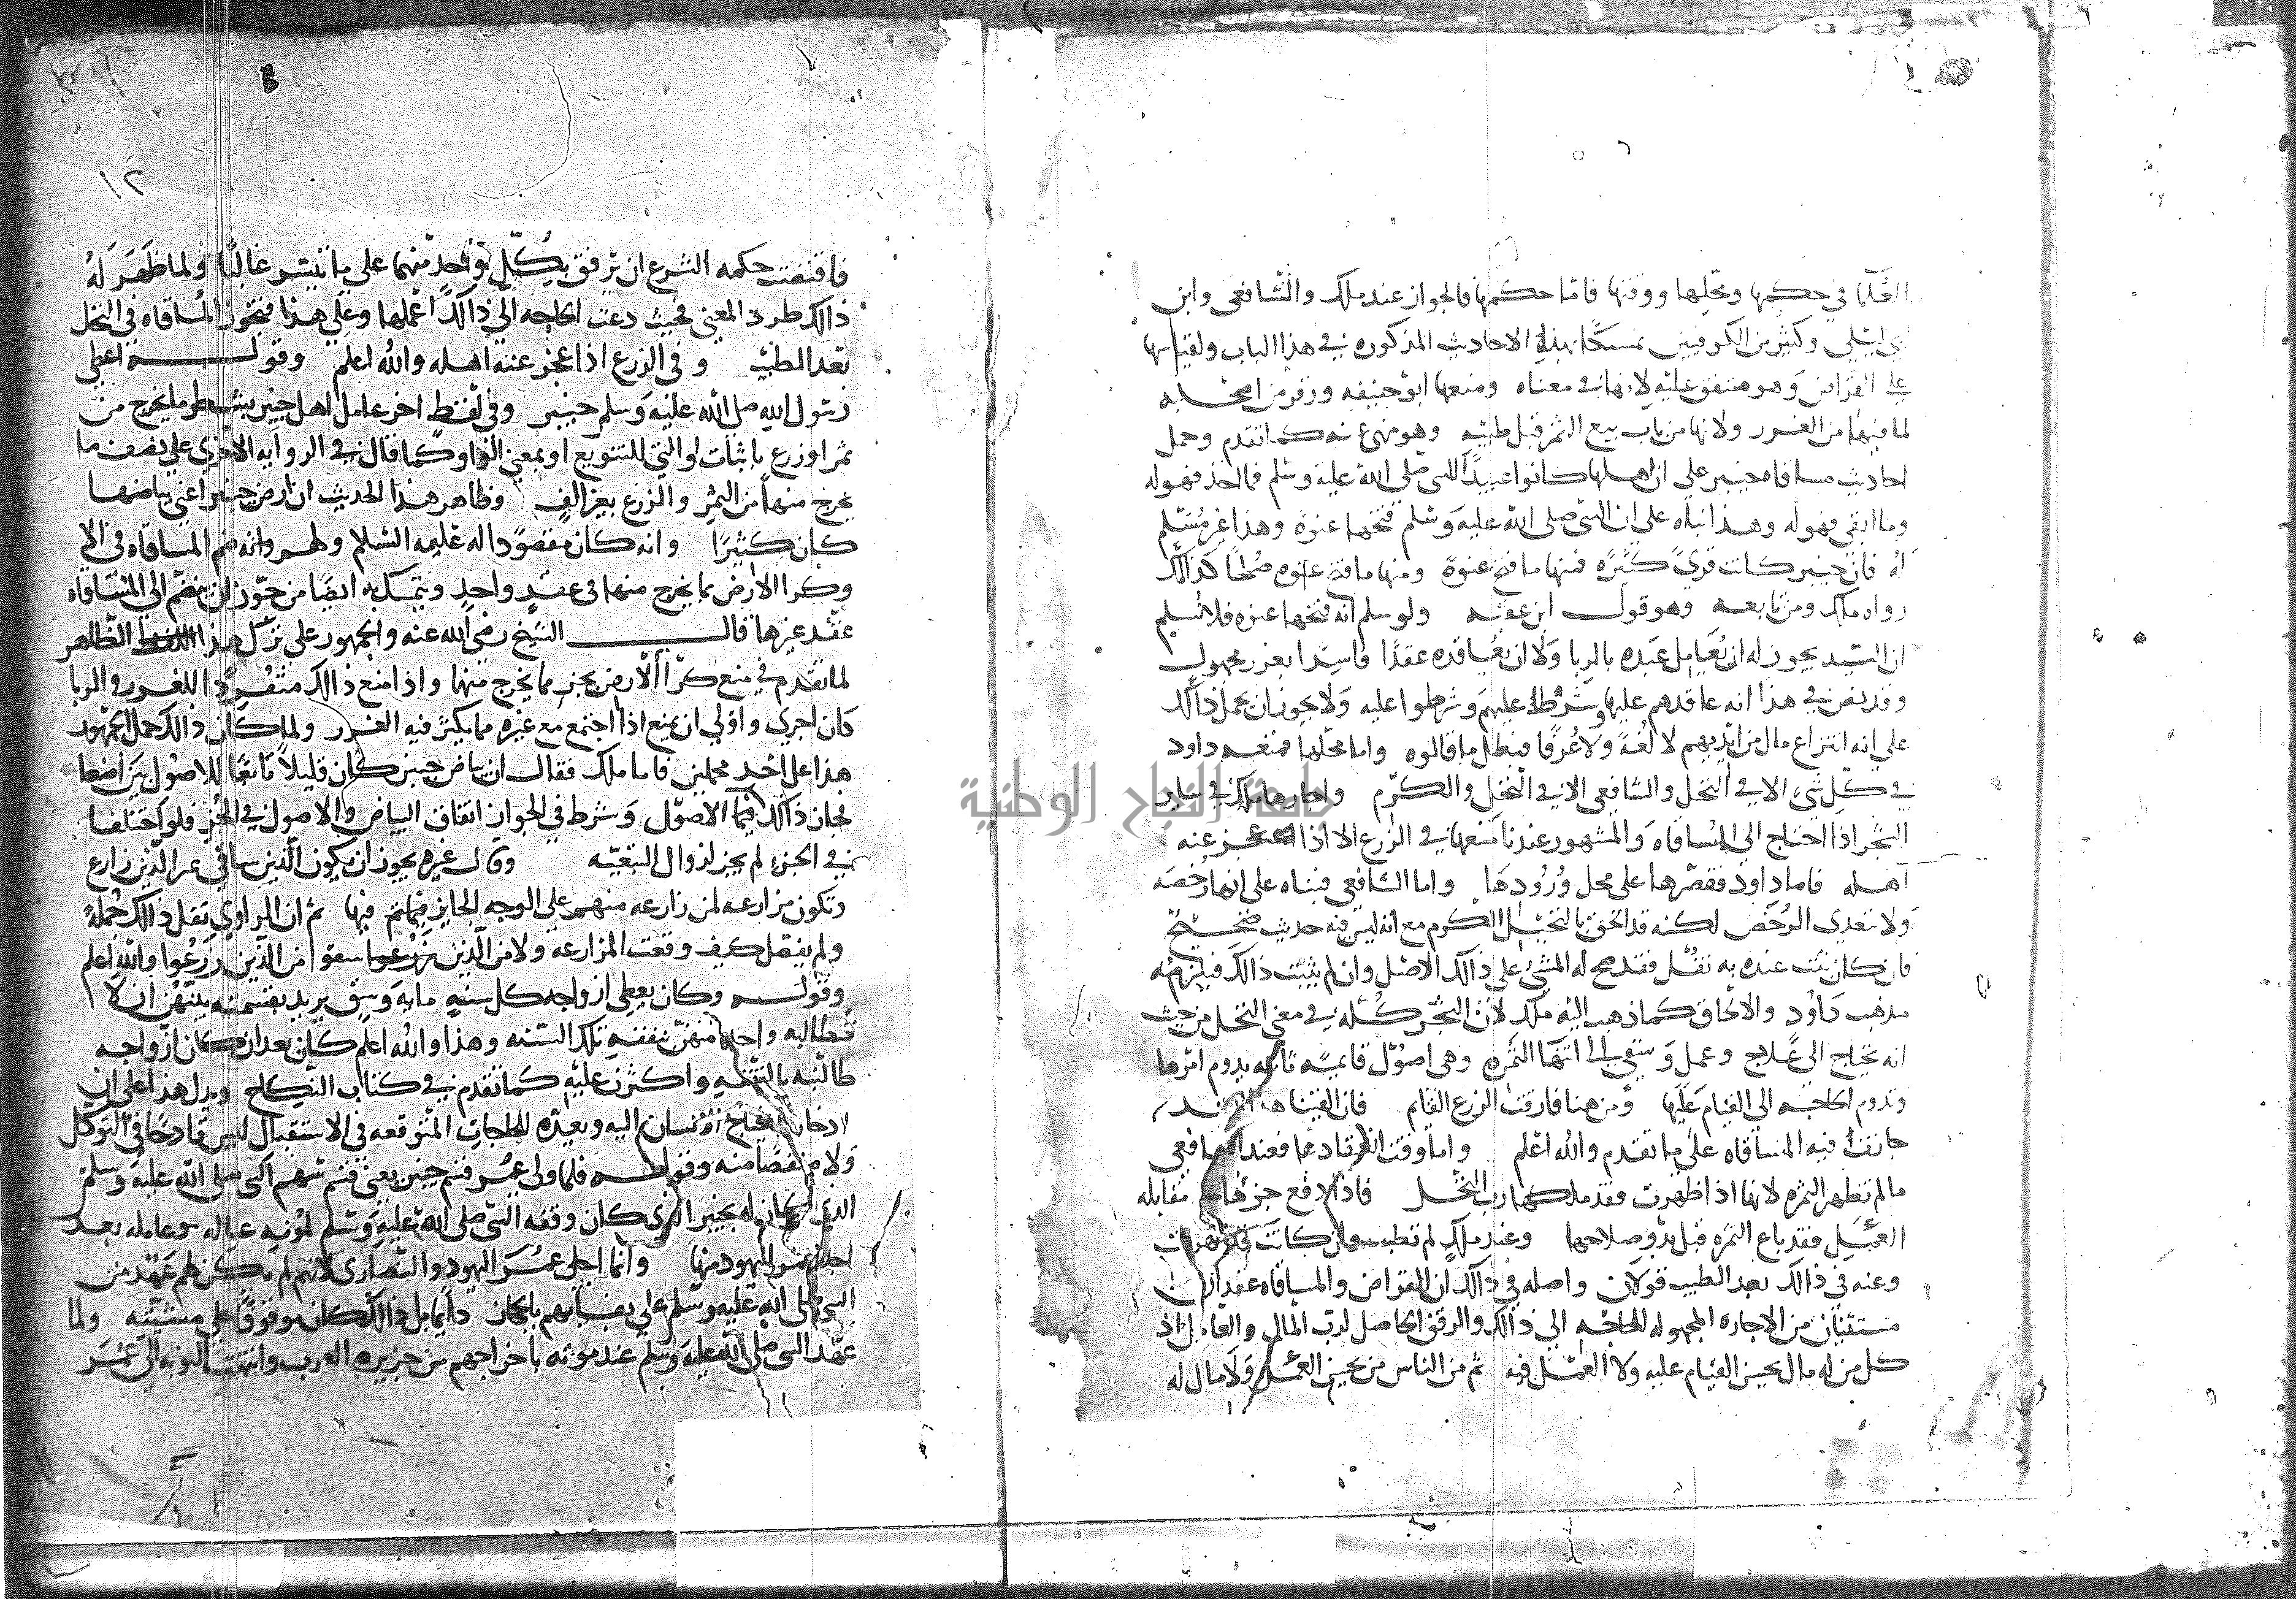 العلما في حكمها ومحلها ووقتها فاما حكمها فالجواز عند ملك والشافعي وابن
ابي ليلى وكثير من الكوفيين تمسكا بهذه الاحاديث المذكوره في هذا الباب ولقياسها
على القراض وهو متفق عليه لانها في معناه ومنعها ابو حنيفه وزفر من اصحابه
لما فيها من الغرر ولانها من باب بيع الثمر قبل طيبه وهو منهي عنه كما تقدم وحمل
احاديث مساقاه خيبر على ان اهلها كانوا عبيدا للنبي صلى الله عليه وسلم فما اخذ فهو له
وما ابقى فهو له وهذا بناه على ان النبي صلى الله عليه وسلم فتحها عنوة وهذا غير مسلم
له فان خيبر كانت قرى كثيره فمنها ما فتح عنوة ومنها ما فتح صلحا كذالك
رواه ملك ومن تابعه وهو قول ابن عقبه ولو سلم انه فتحها عنوه فلا نسلم
ان السيد يجوز له ان يعامل عبده بالربا ولا ان يعاقده عقدا فاسدا بغرر مجهول
وقد نص في هذا انه عاقدهم عليها وشرط عليهم وشرطوا عليه ولا يجوز ان يحمل ذالك
على انه انتزاع مال من ايديهم لا لغة ولا عرفا فبطل ما قالوه واما محلها فمنعه داود
في كل شيء الا في النخل والشافعي الا في النخل والكرم واجازها ملك في ساير
الشجر اذا احتاج الى المساقاه والمشهور عندنا منعها في الزرع الا اذا عجز عنه
اهله فاما داود فقصرها على محل ورودها واما الشافعي فبناه على انها رخصه
ولا تتعدى الرخص لكنه قد الحق بالنخيل الكرم مع انه ليس فيه حديث صحيح
فان كان ثبت عنده به نقل فقد صح له المشي على ذالك الاصل وان لم يثبت ذالك فيلزمه
مذهب داود والالحاق كما ذهب اليه ملك لان الشجر كله في معنى النخل من حيث
انه تحتاج الى علاج وعمل وسقي الى انتها الثمره وهي اصول قايمة ثابته يدوم امرها
وتدوم الحاجه الى القيام عليها ومن هنا فارقت الزرع القايم فان الفينا
جازت فيه المساقاه على ما تقدم والله اعلم واما وقت انعقادها فعند الشافعي
ما لم تظهر الثمره لانها اذا ظهرت فقد ملكها رب النخل فاذا دفع جزءها مقابله
العمل فقد باع الثمره قبل بدو صلاحها وعند ملك لم تطب وان كانت قد ظهرت
وعنه في ذالك بعد الطيب قولان واصله في ذالك ان القراض والمساقاه عقدان
مستثنيان من الاجاره المجهوله للحاجه الى ذالك والرفق الحاصل لرب المال والعامل اذ
كل من له مال يحسن القيام عليه ولا العمل فيه ثم من الناس من يحسن العمل ولا مال له
١٢
فاقتضت حكمه الشرع ان ترفق بكل واحد منهما على ما تيسر غالبا ولما ظهر له
ذالك طرد المعنى فحيث دعت الحاجه الى ذالك اعملها وعلى هذا فتجوز المساقاه في النخل
بعد الطيب وفي الزرع اذا عجز عنه اهله والله اعلم وقوله اعطى
رسول الله صلى الله عليه وسلم خيبر وفي لفظ اخر عامل اهل خيبر بشطر ما يخرج من
ثمر او زرع باثبات او التي للتنويع او بمعنى الواو كما قال في الروايه الاخرى على نصف ما
يخرج منها من الثمر والزرع بغير الف وظاهر هذا الحديث ان ارض خيبر اعني بياضها
كان كثيرا وانه كان مقصودا له عليه السلام ولهم وانه ضم المساقاه في
وكرا الارض بما يخرج منها في عقد واحد ويتمسك به ايضا من جوز ان يضم الى المساقاه
عقد غيرها قال الشيخ رضي الله عنه والجمهور على ترك هذا الظاهر
لما تقدم في منع كرا الارض بجزء مما يخرج منها واذا منع ذالك منفردا للغرر والربا
كان احرى واولى ان يمنع اذا اجتمع مع غيره مما يكثر فيه الغرر ولما كان ذالك حمل الجمهور
هذا على احد محملين فاما ملك فقال ان بياض خيبر كان قليلا تابعا للاصول بين اضعا
فجاز ذالك فيما الاصول وشرط في الجواز اتفاق البياض والاصول في الجزء فلو اختلفا
في الجزء لم يجز لزوال التبعيه وقال غيره يجوز ان يكون الذين ساقي غير الذين زارع
وتكون مزارعه لمن زارعه منهم على الوجه الجايز فيها ثم ان الراوي نقل ذالك جملة
ولم يفصل كيف وقعت المزارعه ولا من الذين سقوا من الذين زرعوا والله اعلم
وقوله وكان يعطي ازواجه كل سنه مايه وسق يريد بقسمته بينهن ان لا
تطالبه واحده منهن بنفقه تلك السنه وهذا والله اعلم كان بعد ان كان ازواجه
طالبنه بالنفقه واكثرن عليه كما تقدم في كتاب النكاح ويدل هذا على ان
ادخار ما يحتاج الانسان اليه ويعده للحاجات المتوقعه في الاستقبال ليس قادحا في التوكل
ولا منقصا منه وقوله فلما ولي عمر قسم خيبر يعني قسم سهم النبي صلى الله عليه وسلم
الذي كان له بخيبر الذي كان وقفه النبي صلى الله عليه وسلم لمؤنه عياله وعامله بعد
اجلا عمر اليهود منها وانما اجلى عمر اليهود والنصارى لانهم لم يكن لهم عهد من
النبي صلى الله عليه وسلم على بقيابهم بالحجاز دايما بل ذالك كان موقوفا على مشيئته ولما
عهد النبي صلى الله عليه وسلم عند موته باخراجهم من جزيره العرب وانتهت النوبه الى عمر
جامعة النجاح الوطنية